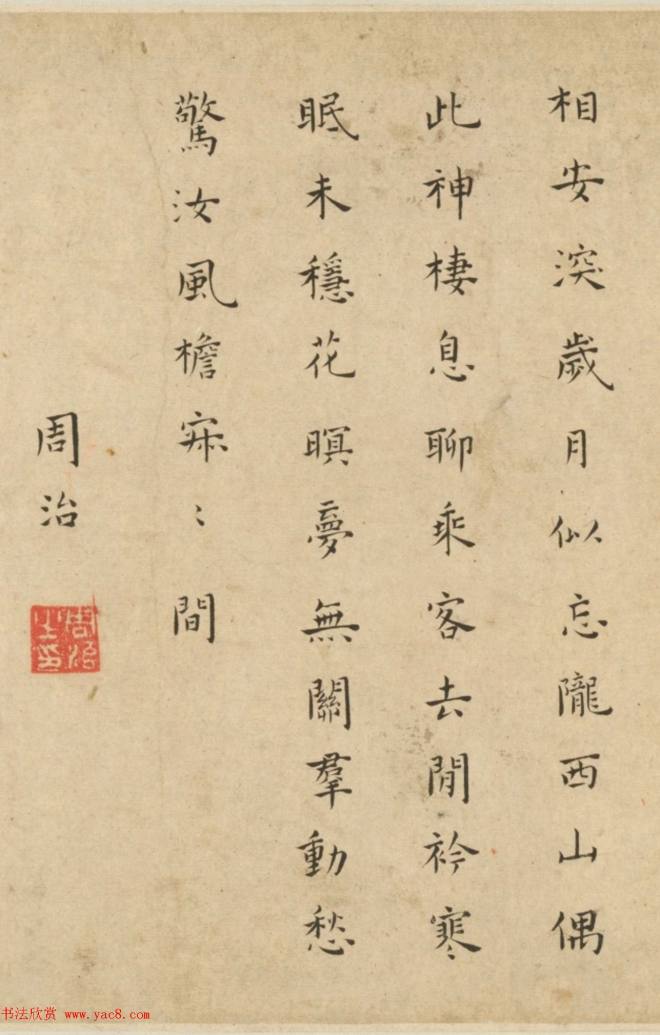 相安深歲月似忘隴西山偶
此神棲息聊乘客去閒衿寒
眠未穩花暝夢無關羣動愁
驚汝風檐寂〻間
周治
周治之印
书法欣赏 www.yac8.com